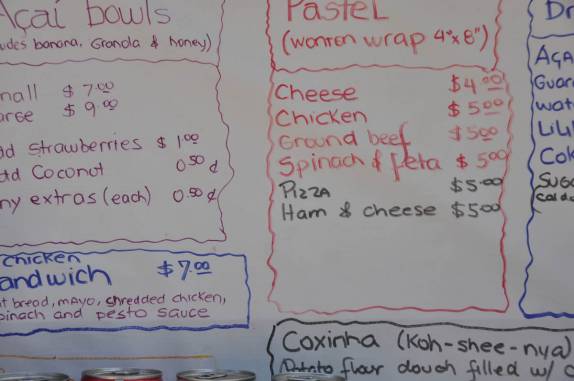 Açaí bowls
banana, Granola & honey)
$7.00
$9.00
strawberries $1.00
Coconut 0.50 ¢
extras (each) 0.50 ¢
Chicken
andwich $7.00
bread, mayo, shredded chicken,
pinach and pesto sauce
Pastel
(wonton wrap 4"x8")
Cheese $4.00
Chicken $5.00
Ground beef $5.00
Spinach & feta $5.00
Pizza $5.00
Ham & cheese $5.00
Coxinha (Koh-shee-nya)
flour dough filled w/
Dr
Aça
Guar
wat
Lili
Cok